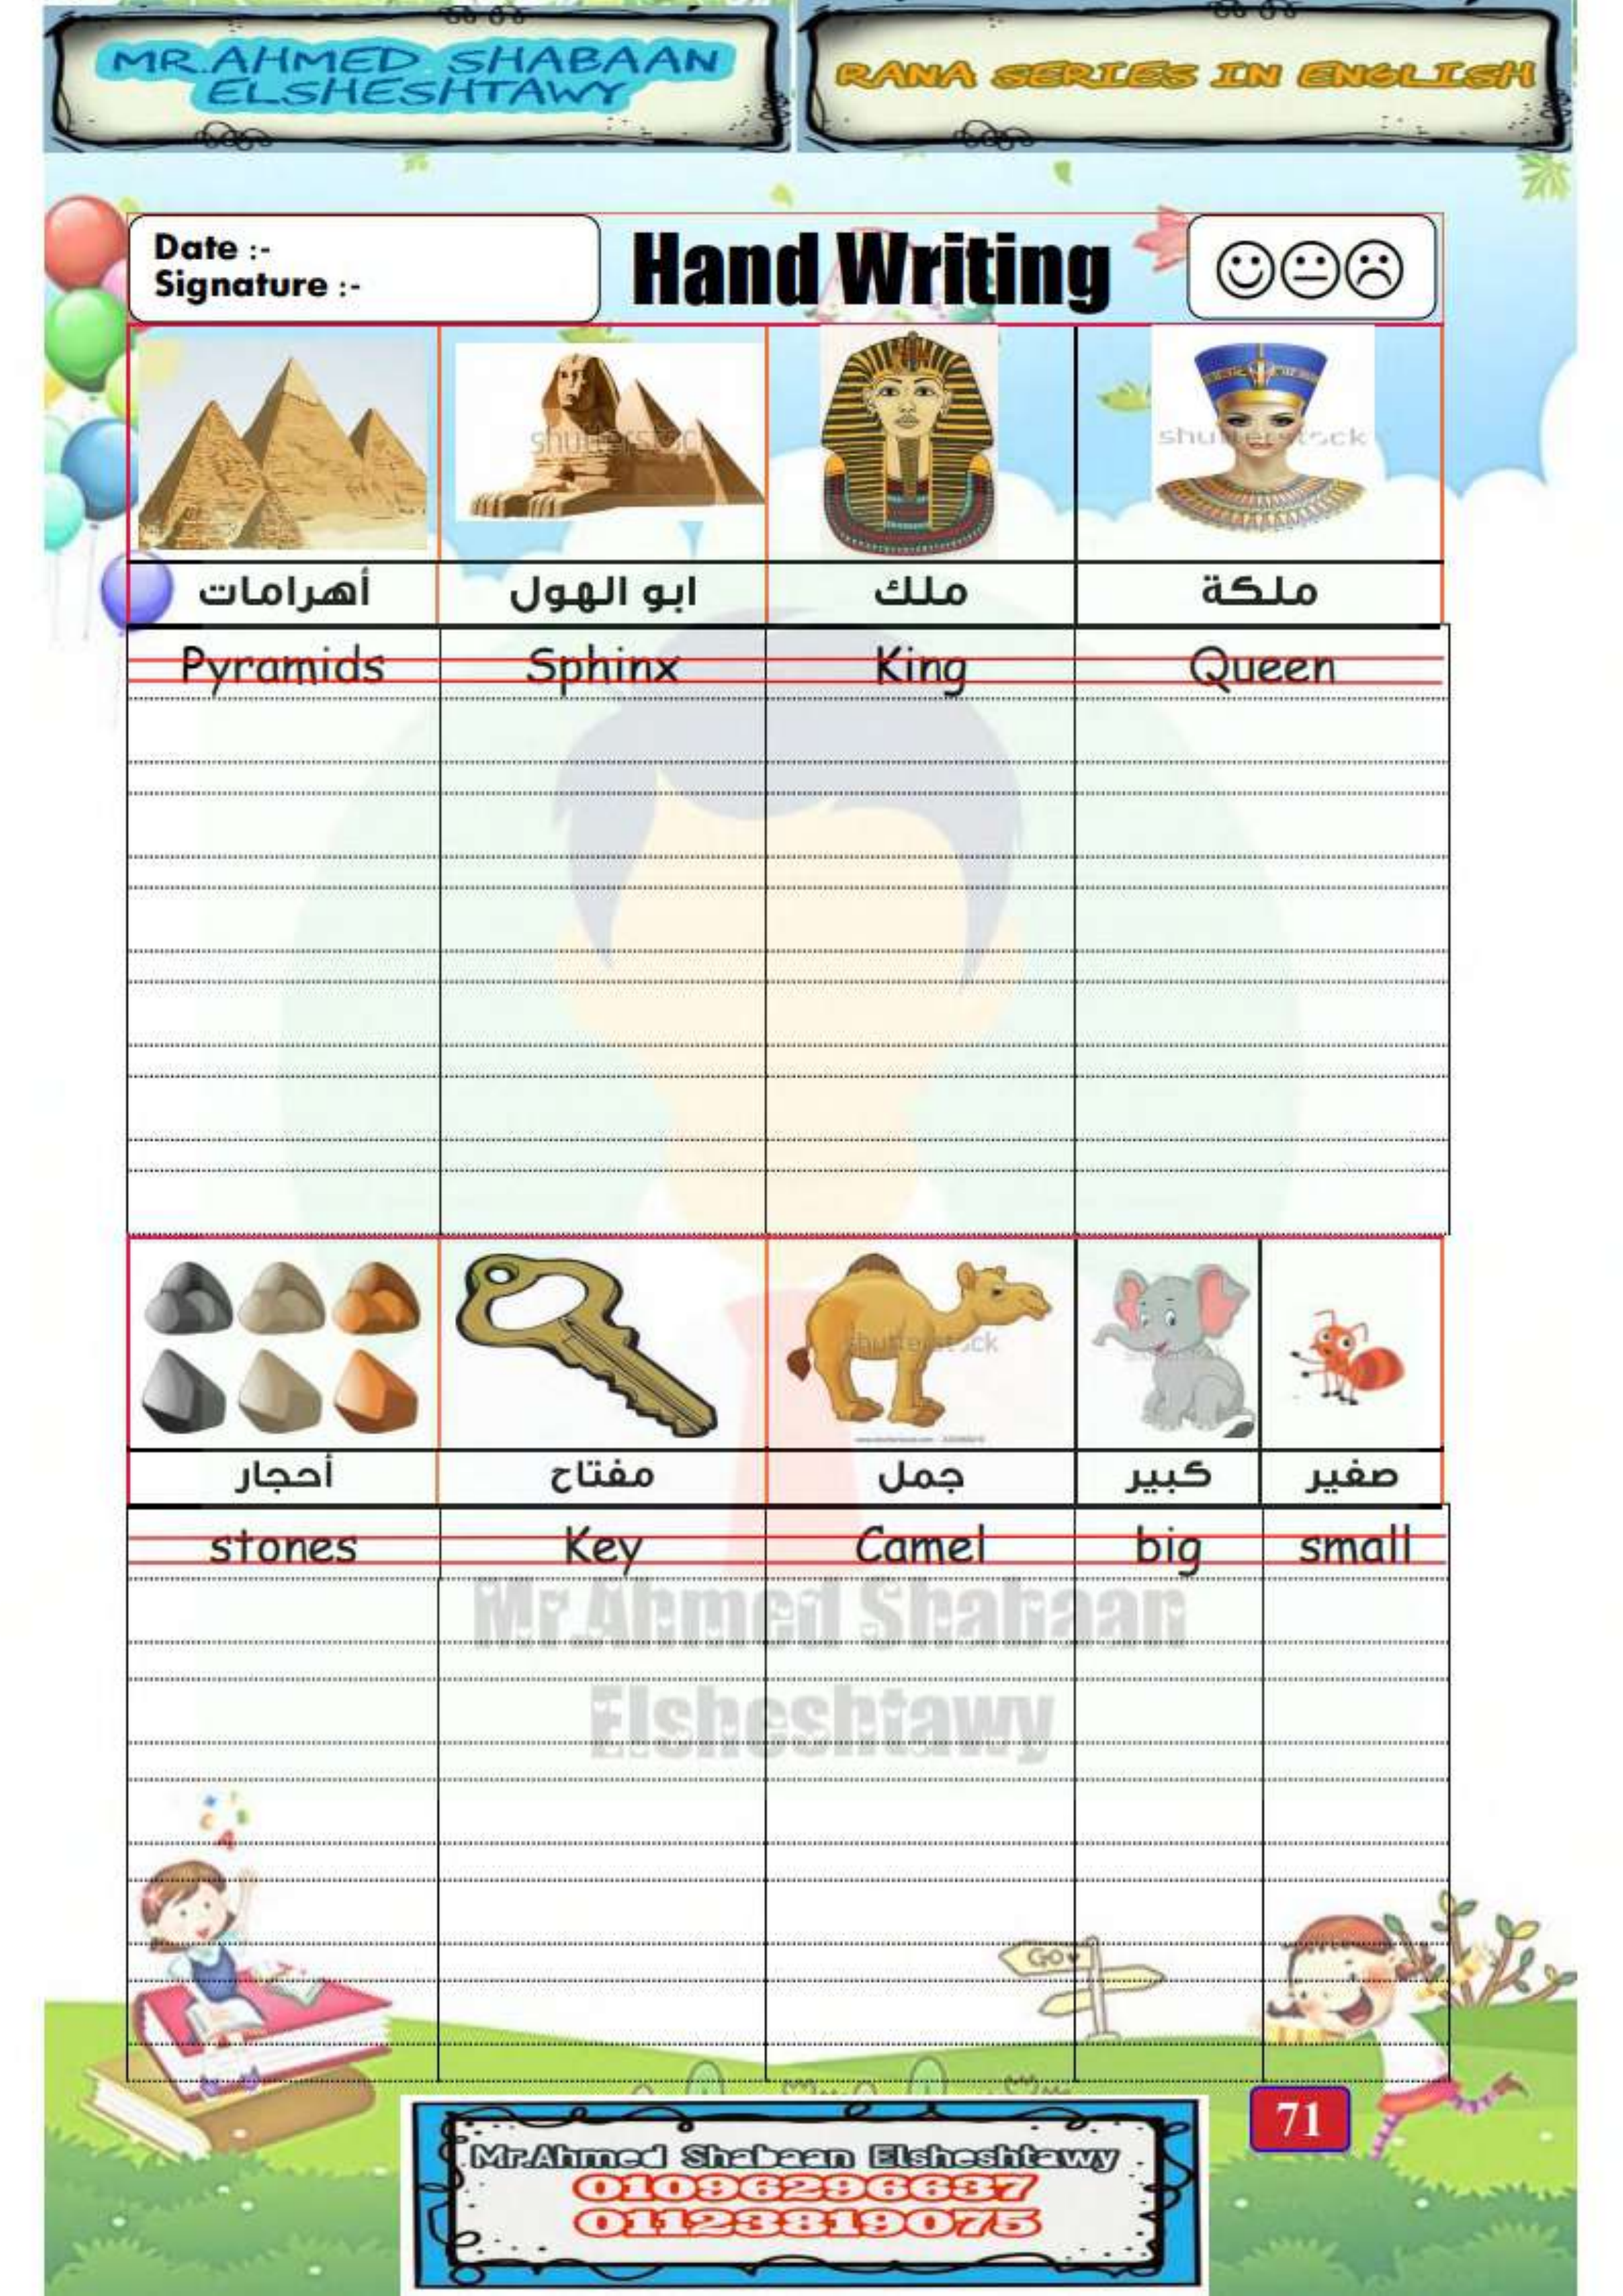 MR.AHMED SHABAAN
ELSHESHTAWY
RANA SERIES IN ENGLISH
Date :-
Signature :-
Hand Writing
shutterstock
shutterstock
أهرامات ابو الهول ملك ملكة
Pyramids Sphinx King Queen
shutterstock
أحجار مفتاح جمل كبير صغير
stones Key Camel big small
Mr.Ahmed Shabaan
Elsheshtawy
GO
71
Mr.Ahmed Shabaan Elsheshtawy
01096296637
01123819075